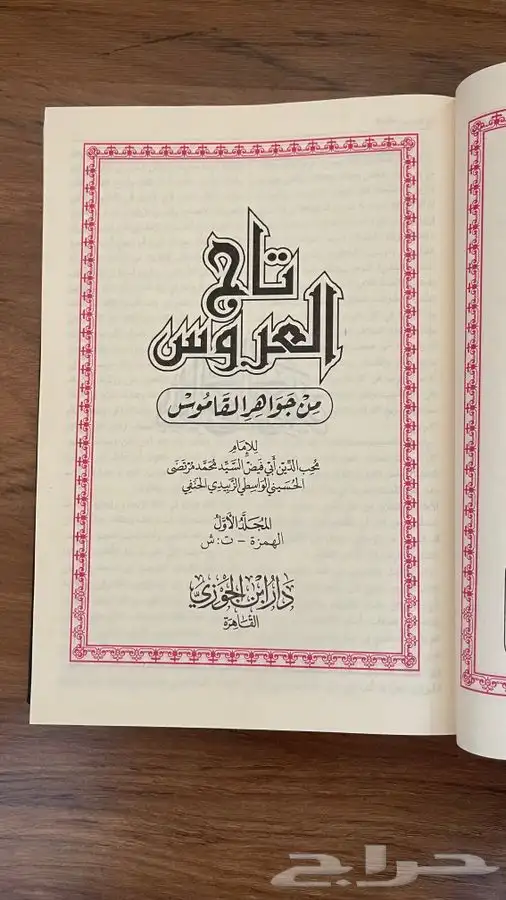 تاج
العروس
من جواهر القاموس
للإمام
محب الدين أبي فيض السيد محمد مرتضى
الحسيني الواسطي الزبيدي الحنفي
المجلد الأول
الهمزة - ت: ش
دار ابن الجوزي
القاهرة
حراج